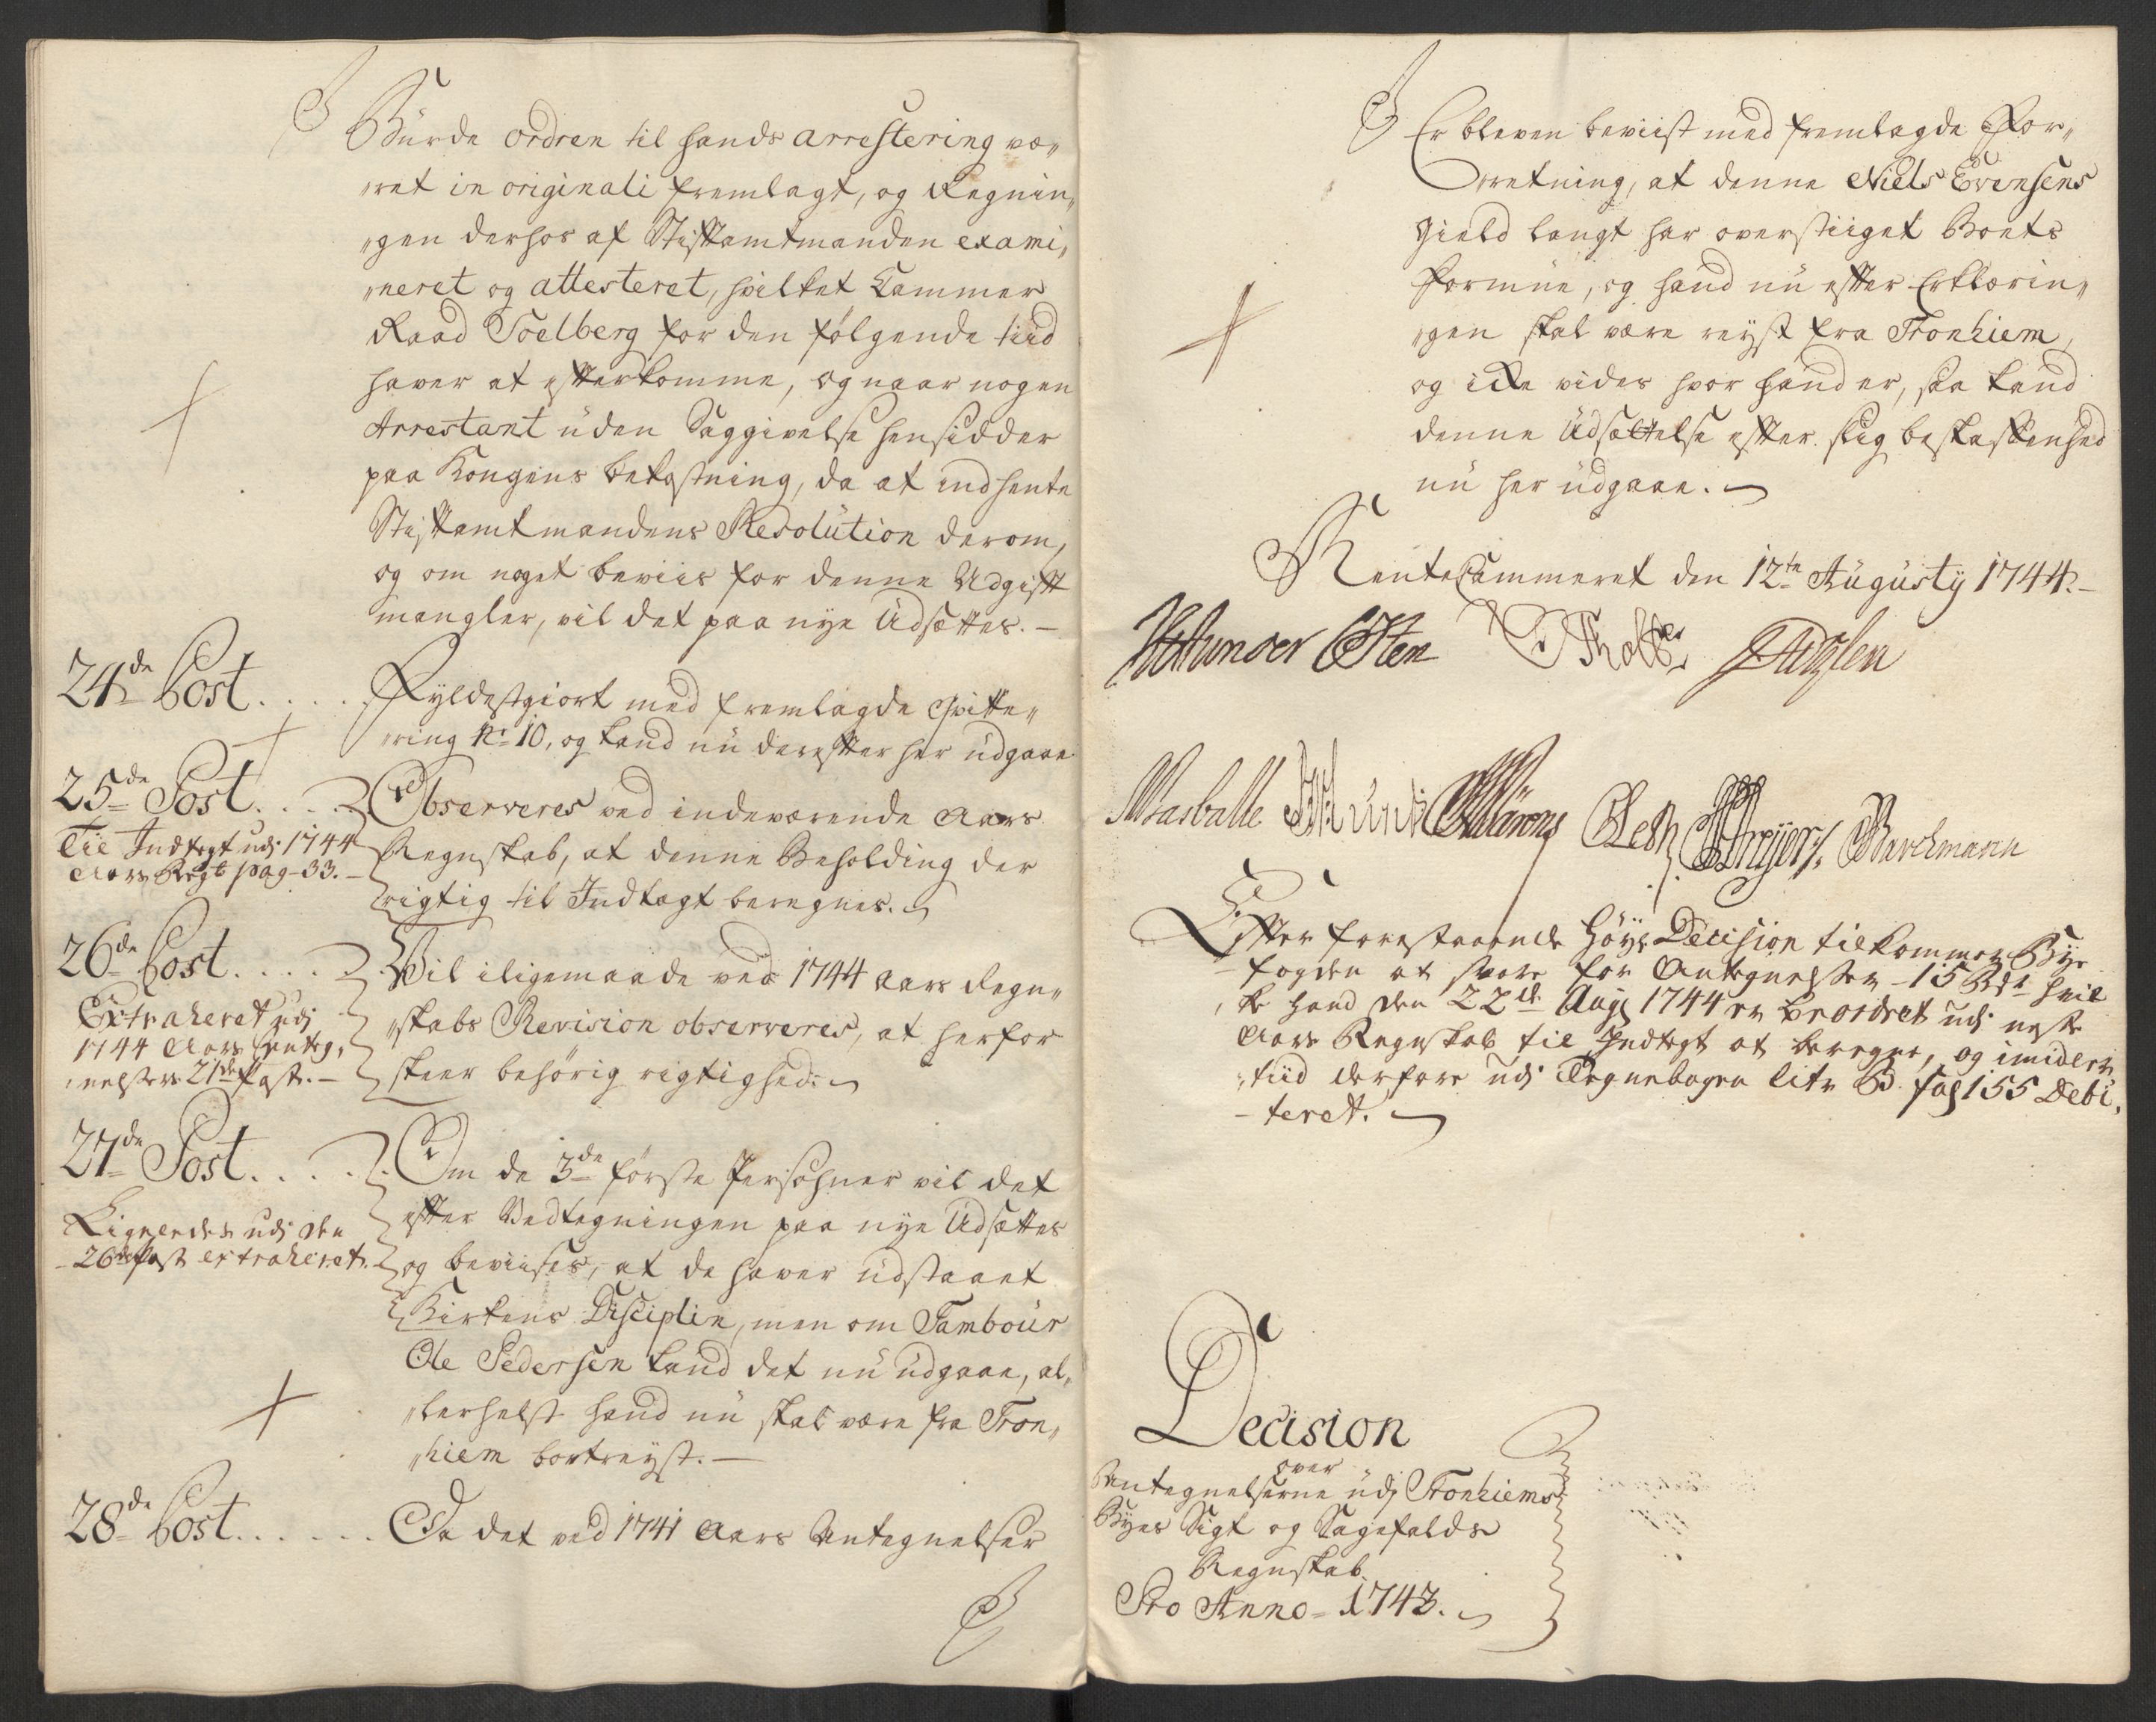 Burde ordren til hands arrestering væ„
„ret in originali fremlagt, og Regnin„
„gen derhos af Stiftamtmanden exami„
„neret og attesteret, hvilket Cammer
Raad Soelberg for den følgende tiid
haver at efterkomme, og naar nogen
Arrestant uden Saggivelse hensidder
paa Kongens bekostning, da at indhente
Stiftamtmandens Resolution derom,
og om noget beviis for denne Udgift
mangler, vil det paa nye Udsættes. –
24de Post . . . . Fyldestgiort med fremlagde Qvitte„
„ring No 10, og kand nu derefter her udgaae
25de Post . . . . Observeres ved indeværende Aars
Til Indtegt udj 1744
Aars Regb pag - 33. –
Regnskab, at denne Beholding der
rigtig til Indtægt beregnes.
26de Post . . . . Vil iligemaade ved 1744 Aars Regn„
Extraheret udj
1744 Aars Anteg„
„nelsers 21de Post. –
„skabs Revision observeres, at herfor
skeer behörig rigtighed.
27de Post . . . . Om de 3de förste Persohner vil det
Ligeledes udj den
26de Post extraheret.
efter Vedtegningen paa nye Udsættes
og beviises, at de haver udstaaet
Kirkens Disciplin, men om Tambour
Ole Pedersen kand det nu udgaae, al„
„lerhelst hand nu skal være fra Tron„
„hiem bortreyst. –
28de Post . . . . . . Da det ved 1741 Aars Antegnelser
Er bleven beviist med fremlagde For„
„retning, at denne Niels Evensens
Gield langt har overstiiget Boets
Formue, og hand nu efter Erklærin„
„gen skal være reyst fra Tronhiem,
og icke vides hvor hand er, saa kand
denne Udsættelse efter slig beskaffenhed
nu her udgaae.
RenteCammeret den 12te Augusty 1744. –
Efter forestaaende Höye Decision tilkommer Bye
fogden at svare for Antegnelsen - 15 Rdr hvil
„ke hand den 22de Aug 1744 er beordret udj neste
Aars Regnskab til Indtegt at beregne, og imidler
„tiid derfore udj Tegnebogen litr B. fol 155 Debi„
– teret.
Decision
over
Antegnelserne udj Tronhiems
Byes Sigt og Sagefalds
Regnskab
Pro Anno - 1743.